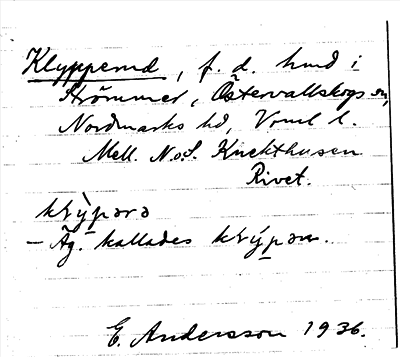 Klypperud, f. d. hmd i
Strömmer, Östervallskogs sn,
Nordmarks hd, Vrml l.
Mell. N. o. S. Knekthusen
Rivet.
krỳpərə
– Äg. kallades krýpən.
E. Andersson 1936.